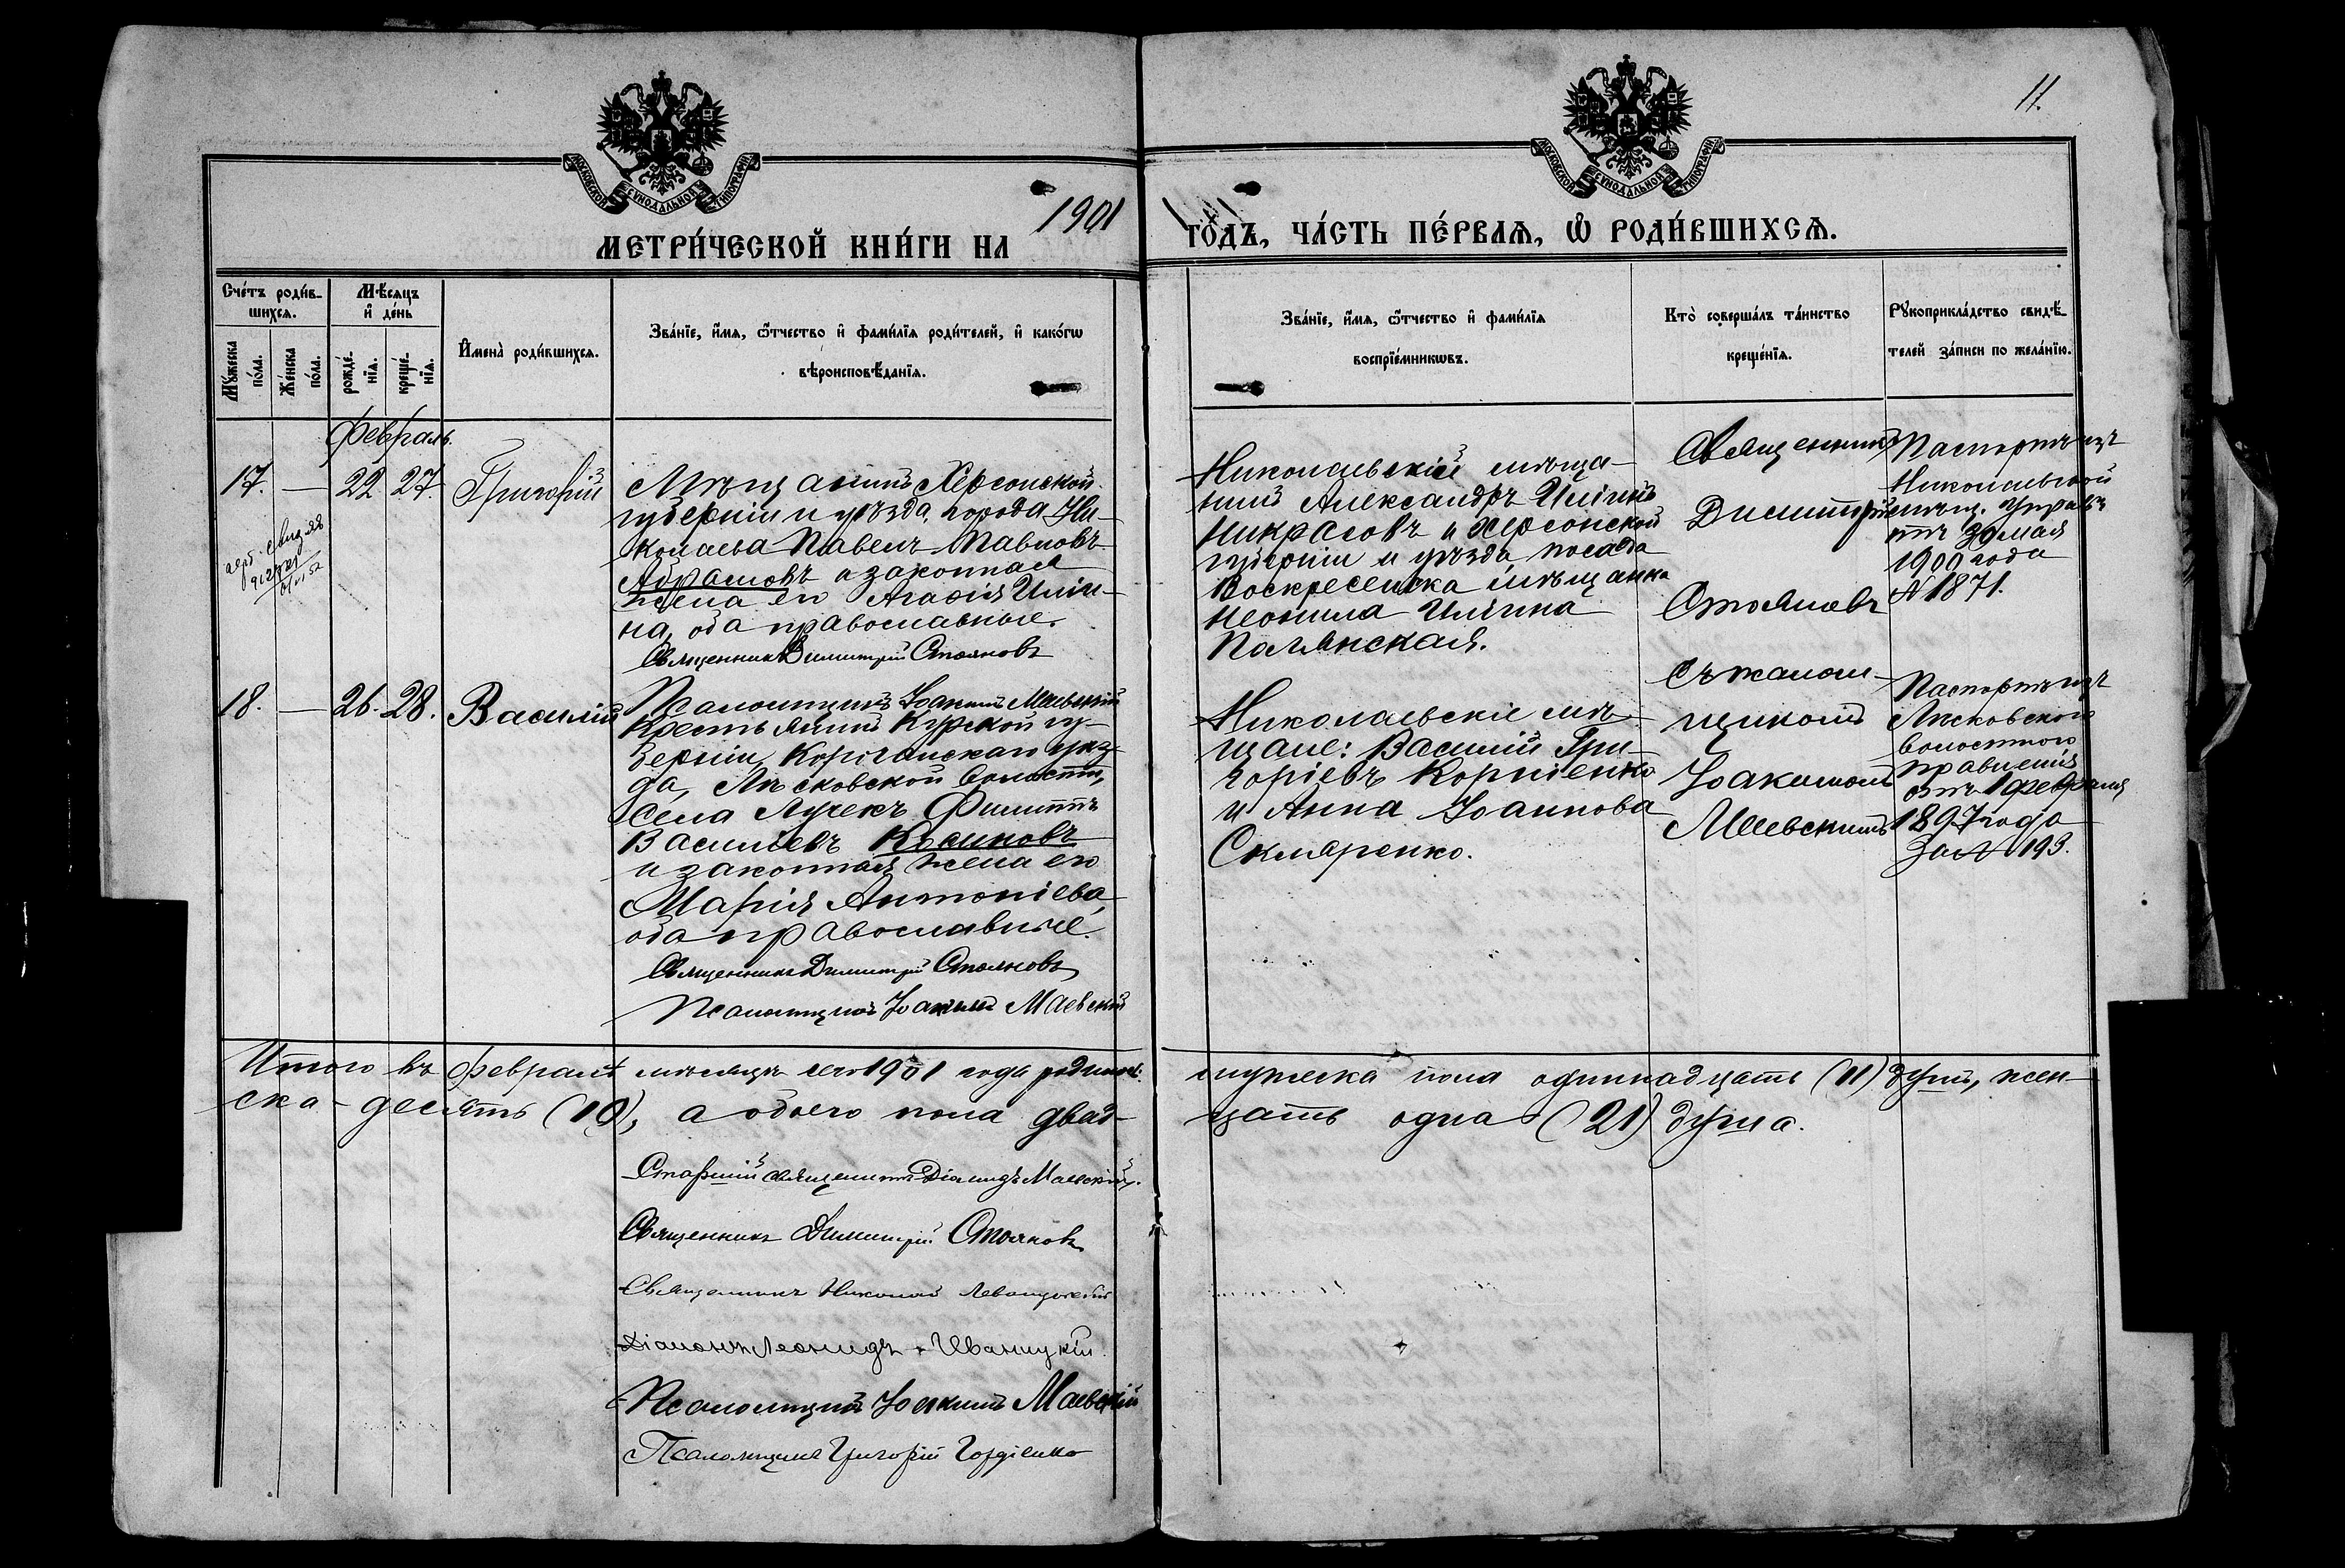 11.
МОСКОВСКОЙ СѴНОДАЛЬНОЙ ТИПОГРАФІИ
МОСКОВСКОЙ СѴНОДАЛЬНОЙ ТИПОГРАФІИ
МЕТРИ́ЧЕСКОЙ КНИ́ГИ НА 1901 ГО́ДЪ, ЧА́СТЬ ПЕ́РВАѦ, Ѡ РОДИ́ВШИХСѦ.
Сче́тъ роди́в-
шихсѧ.
Мꙋ́жеска по́ла.
Же́нска по́ла.
Мѣ́сѧцъ
и҆ де́нь
рожде́-
нїѧ.
креще́-
нїѧ.
И҆мена̀ роди́вшихсѧ.
Зва́нїе, и҆́мѧ, ѻ҆́тчество и҆ фами́лїѧ роди́телей, и҆ како́гѡ
вѣроисповѣ́данїѧ.
Зва́нїе, и҆́мѧ, ѻ҆́тчество и҆ фами́лїѧ
воспрїе́мникѡвъ.
Кто̀ соверша́лъ та́инство
креще́нїѧ.
Рꙋкоприкла́дство свидѣ́-
телей за́писи по жела́нїю.
февраль.
17. — 22 27. Григорій
Мѣщанинъ Херсонской
губерніи и уѣзда, города Ни-
колаева Павелъ Павловъ
Абрамовъ и законная
жена его Агаѳія Иліи-
на, оба православные.
Священникъ Димитрій Стояновъ
Псаломщикъ Іоакимъ Маевскій
Николаевскій мѣща-
нинъ Александръ Иліинъ
Никрасовъ и Херсонской
губерніи и уѣзда, посада
Воскресенска мѣщанка
Неонила Иліина
Полянская.
Священникъ
Димитрій
Стояновъ
съ псалом-
щикомъ
Іоакимомъ
Маевскимъ
Паспортъ изъ
Николаевской
мѣщ. Управы
отъ 30 мая
1900 года
№ 1871.
18. — 26. 28. Василій
Крестьянинъ Курской гу-
берніи, Корочанскаго уѣз-
да, села
Филиппъ
Васильевъ Косиновъ
и законная жена его
Марія Антоніева,
оба православные.
Священникъ Димитрій Стояновъ
Псаломщикъ Іоакимъ Маевскій
Николаевскіе мѣ-
щане: Василій Гри-
горіевъ Корніенко
и Анна Іоаннова
Скляренко.
Паспортъ изъ
волостного
правленія
отъ 1 февраля
1897 года
за № 193.
Итого въ февралѣ мѣсяцѣ сего 1901 года родилось мужеска пола одиннадцать (11) душъ, жен-
ска - десять (10), а обоего пола двад- цать одна (21) душа.
Старшій священникъ Діомидъ Маевскій.
Священникъ Димитрій Стояновъ
Священникъ Николай Левицкій
Діаконъ Леонидъ Иваницкій
Псаломщикъ Іоакимъ Маевскій
Псаломщикъ Григорій Гордіенко